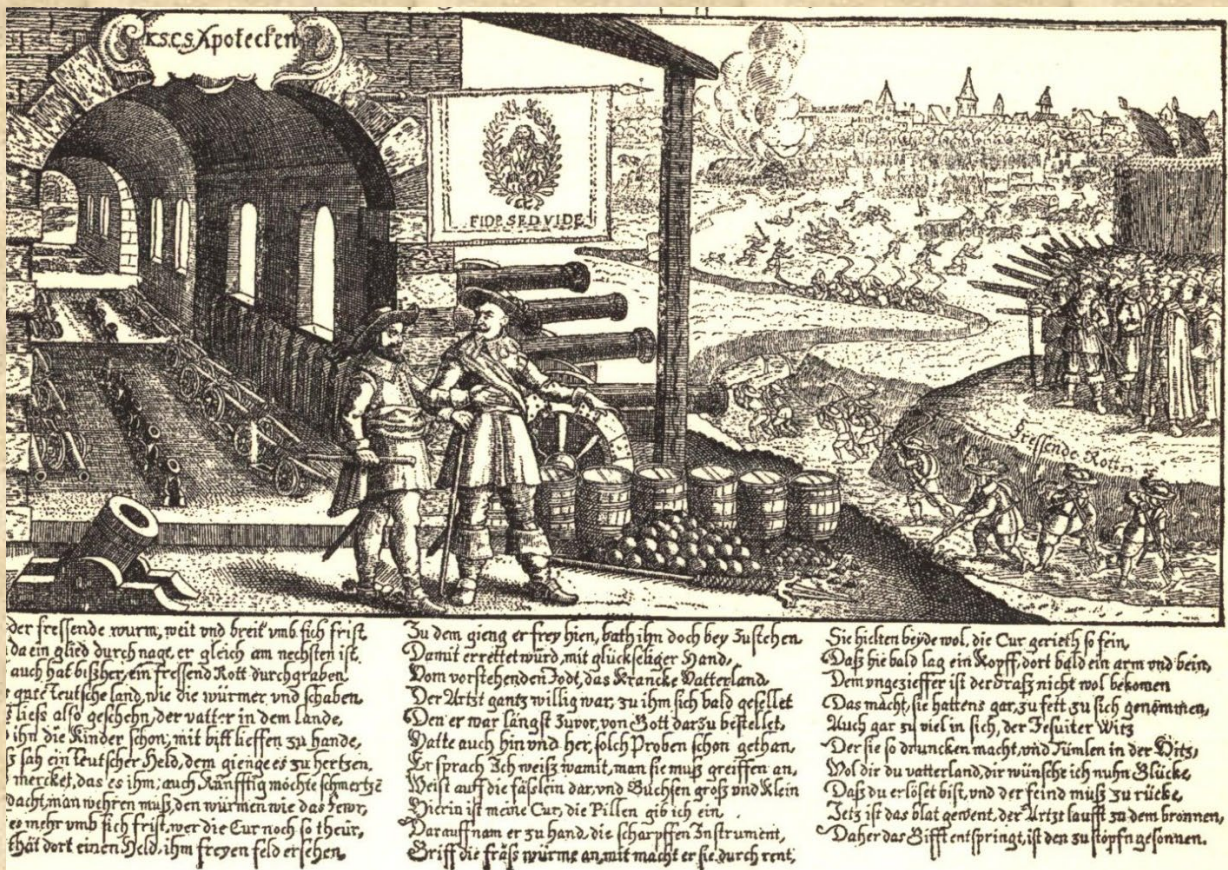 K.S.C.S. Apotecken
FIDE SED VIDE
Fressende Rott
der fressende wurm, weit vnd breit vmb sich frist
da ein glied durch nage, er gleich am nechsten ist.
auch hat bißher, ein fressend Rott durchgraben
gute Teutsche land, wie die würmer vnd schaben
ließ also geschehn, der vatter in dem lande,
ihn die Kinder schon, mit biß lieffen zu hande,
sah ein teutscher Held, dem gienge es zu hertzen,
mercket, das es ihm, auch Künfftig möchte schmertzẽ
dacht, man wehren muß, den würmen wie das fewr,
es mehr vmb sich frist, wer die Cur noch so theür,
thät dort einen Held, ihm freyen feld ersehen
Zu dem gieng er frey hien, bath ihn doch bey Zustehen
Damit errettet würd, mit glückseliger Hand,
Vom vorstehenden Todt, das Krancke Vatterland
Der Artzt gantz willig war, zu ihm sich bald gesellet
Den er war längst Zuvor, von Gott darzu bestellet,
Hatte auch hin vnd her, solch Proben schon gethan.
Er sprach Ich weiß wamit, man sie muß greiffen an,
Weist auff die fäßlein dar, vnd Buchsen groß vnd Klein
Hierin ist meine Cur, die Pillen gib ich ein
Darauff nam er zu hand, die scharpffen Instrument,
Griff die fräß würme an, mit macht er sie durch rent,
Sie hielten beyde wol, die Cur gerieth so fein,
Daß hie bald lag ein Kopff, dort bald ein arm vnd bein,
Dem vngezieffer ist der fraß nicht wol bekomen
Das macht, sie hattens gar, zu fett zu sich genommen,
Auch gar zu viel in sich, der Jesuiter Witz
Der sie so druncken macht, vnd Tümlen in der Hitz,
Wol dir du vatterland, dir wünsche ich nuhn Glücke,
Daß du erlöset bist, vnd der feind muß zu rücke,
Jetz ist das blat gewent, der Artzt laufft zu dem bronnen,
Daher das Gifft entspringt, ist den zu stopfn gesonnen.